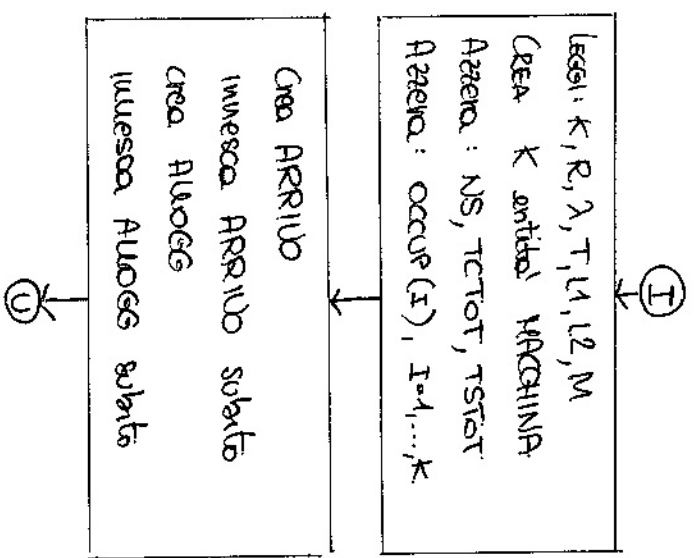 I
LEGGI: K, R, λ, T, L1, L2, M
CREA K entità MACCHINA
Azzera: NS, TCTOT, TSTOT
Azzera: OCCUP(I), I=1,...,K
Crea ARRIVO
innesca ARRIVO subito
crea ALLOGG
innesca ALLOGG subito
U